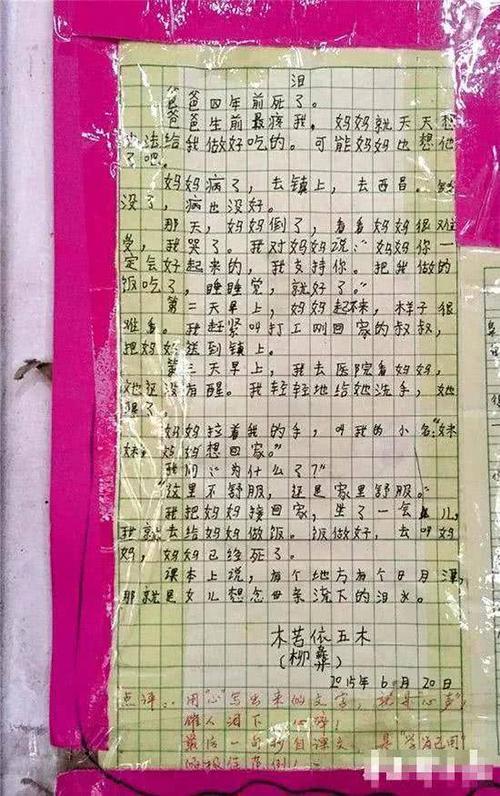 泪
爸爸四年前死了。
爸爸生前最疼我,妈妈就天天想
办法给我做好吃的。可能妈妈也想他
了吧。
妈妈病了,去镇上,去西昌。钱
没了,病也没好。
那天,妈妈倒了,看看妈妈很难
受,我哭了。我对妈妈说:“妈妈你一
定会好起来的,我支持你。把我做的
饭吃了,睡睡觉,就好了。”
第二天早上,妈妈起不来,样子很
难看。我赶紧叫打工刚回家的叔叔,
把妈妈送到镇上。
第三天早上,我去医院看妈妈,
她还没有醒。我轻轻地给她洗手,她
醒了。
妈妈拉着我的手,叫我的小名“妹
妹,妈妈想回家。”
我问:“为什么了?”
“这里不舒服,还是家里舒服。”
我把妈妈接回家,坐了一会儿,
我就去给妈妈做饭。饭做好,去叫妈
妈,妈妈已经死了。
课本上说,有个地方有个日月潭,
那就是女儿想念母亲流下的泪水。
木苦依五木
(柳彝)
2015年6月20日
点评:用“心”写出来的文字,就是心声,
催人泪下
最后一句抄自课文,是“学为己用”